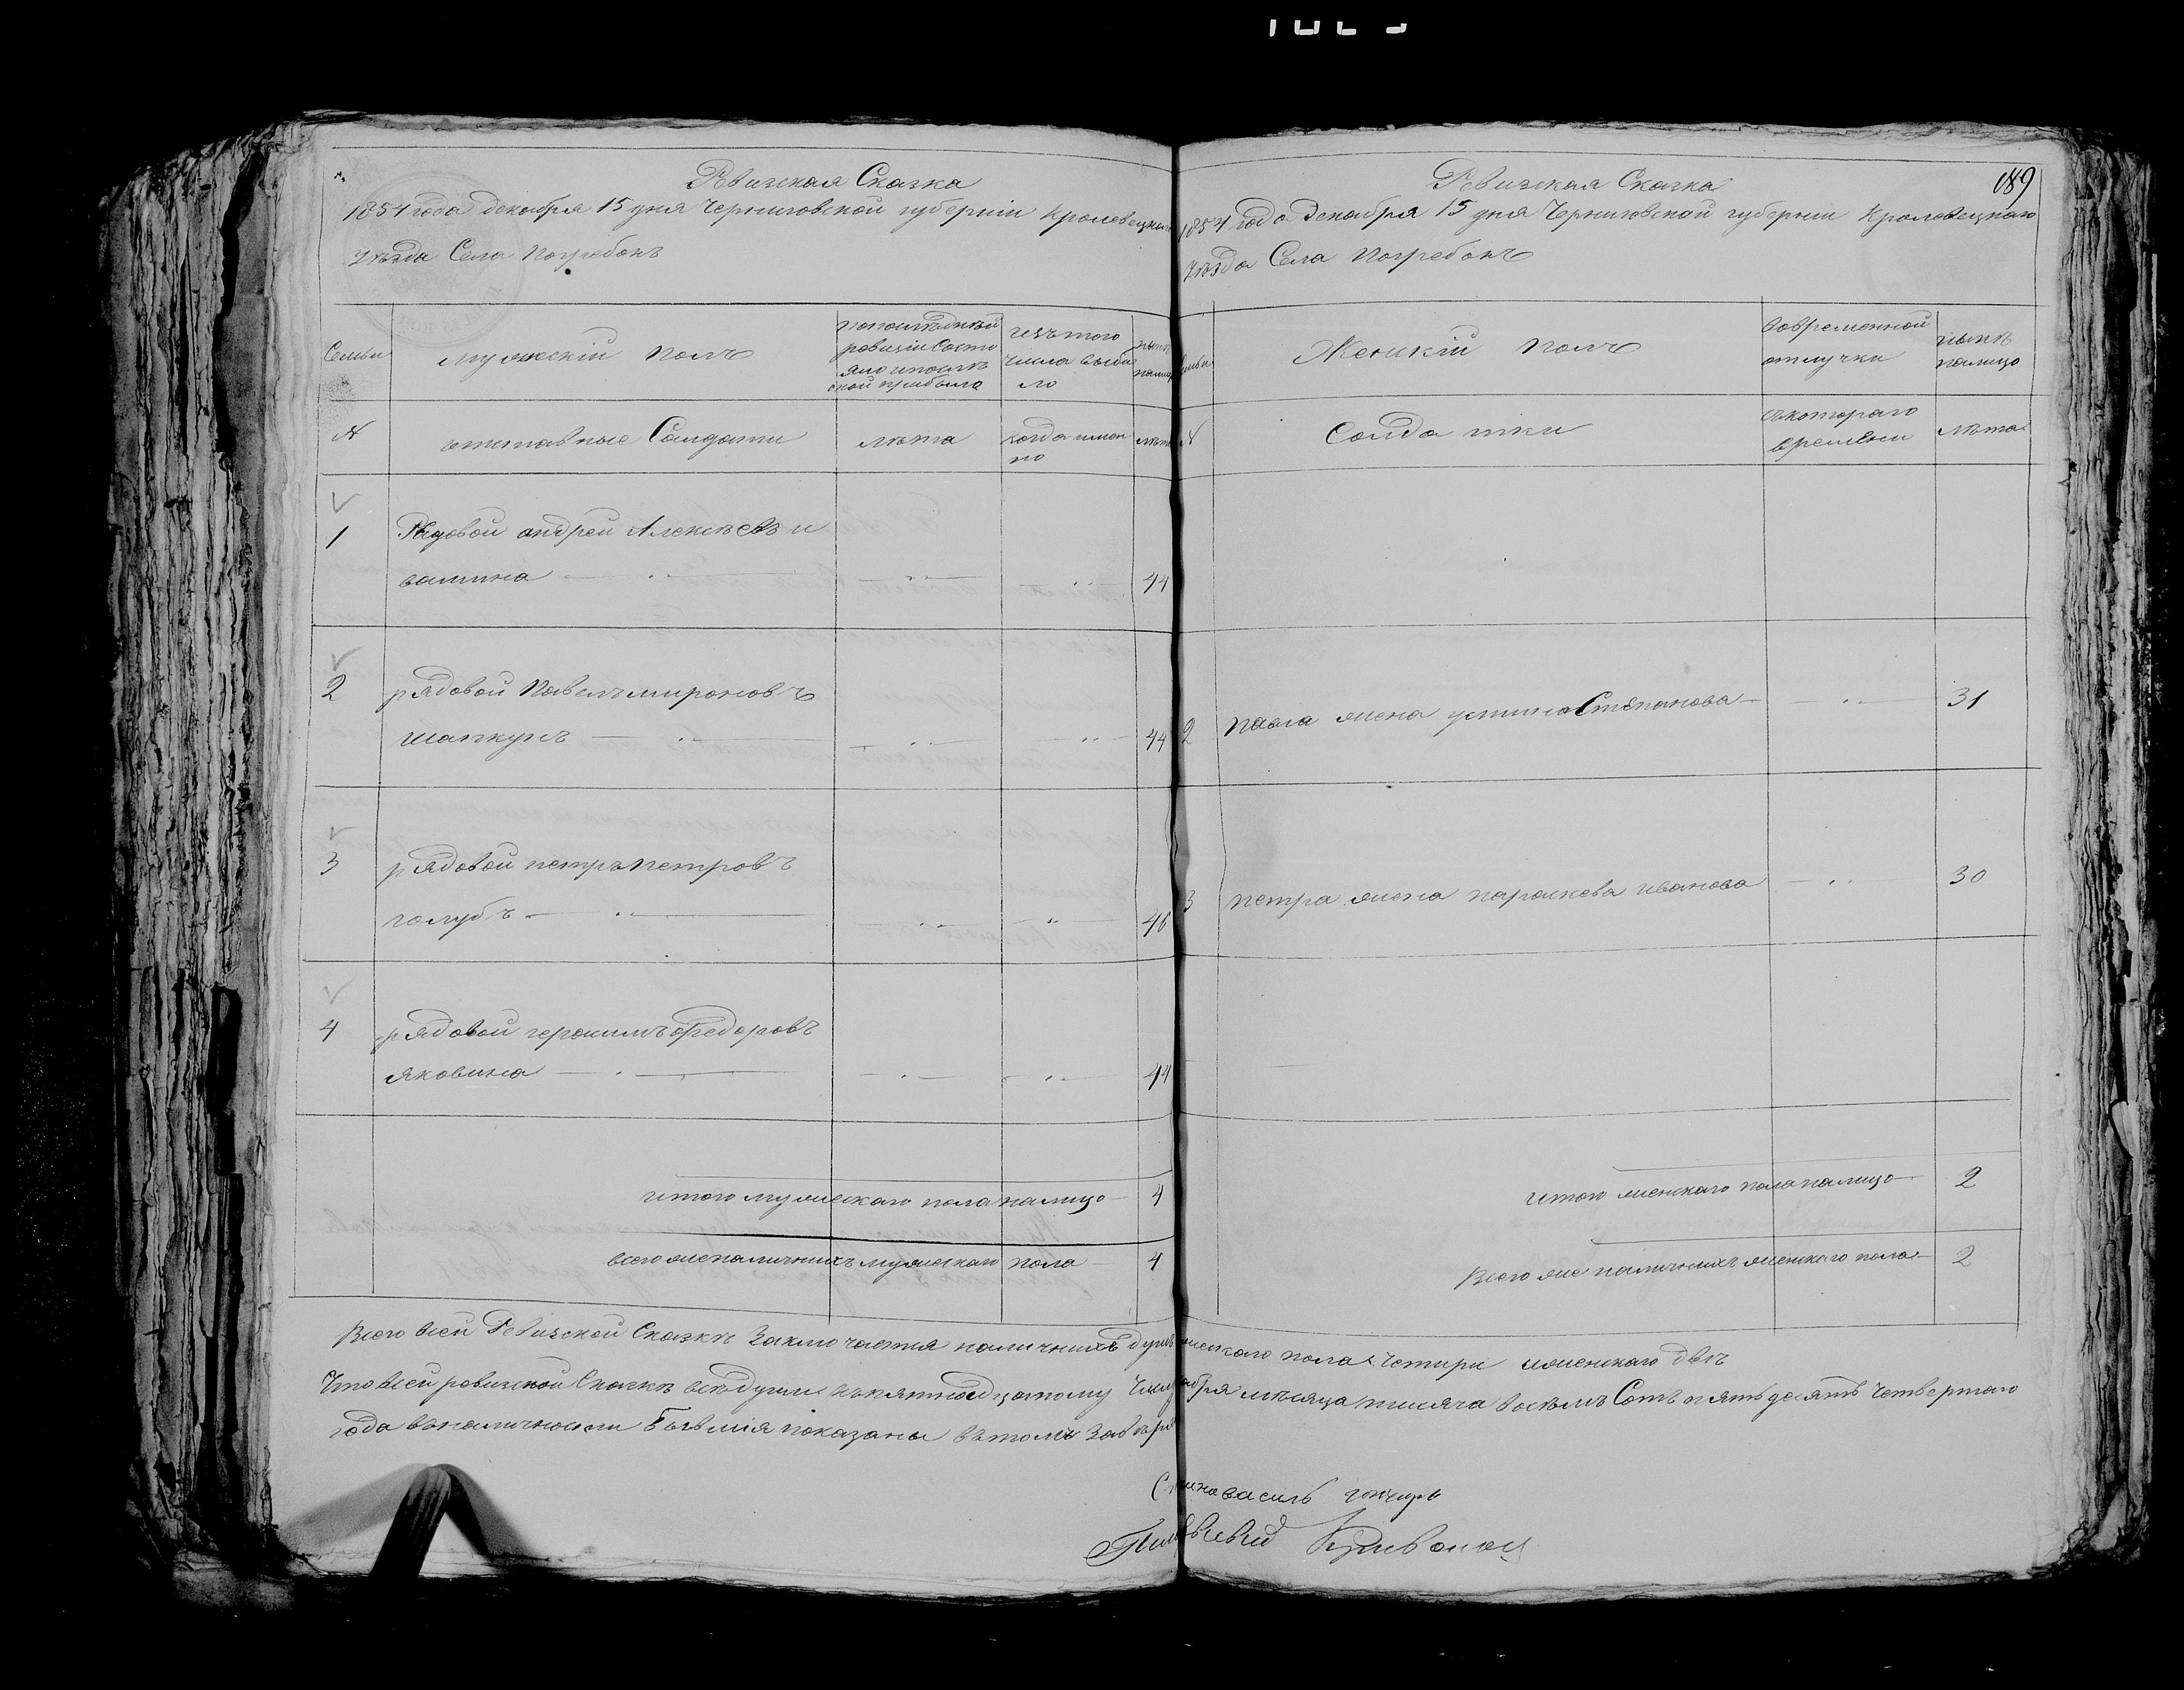 Ревизская Сказка
1854 года декабря 15 дня Черниговской губернии Кролевецкаго
уѣзда Села Погребокъ
Семьи
мужескій полъ
попослѣдней
ревизіи Состо
яло ипослѣ
оной прибыло
изъ того
числа выбы
ло
нынѣ
налицо
№
отставные Салдаты
лѣта
когда имен
но
лѣта
1 Рядовой андрей Алексѣевъ и
вашина 44
2 рядовой Павелъ мироновъ
шапкунъ 44
3 рядовой петръ петровъ
голубъ 46
4 рядовой герасимъ Федоровъ
яковина 44
итого мужескаго пола налицо 4
всего же наличнихъ мужескаго пола 4
189
Ревизская Сказка
1854 года декабря 15 дня Черниговской губернии Кролевецкаго
уѣзда Села Погребокъ
семьи
Женскій полъ
вовременной
отлучки
нынѣ
налицо
№
Солдатки
скотораго
времени
лѣта
2 павла жена устина Степанова 31
3 петра жена параскева иванова 30
итого женскаго пола налицо 2
Всего же наличнихъ женскаго пола 2
Всего всей Ревизской Сказкѣ Заключается наличнихъ душъ мужескаго пола четыри иженскаго двѣ
Что всей ревизской Сказкѣ всѣ души кпятнодцатому Числу месяца тисяча восѣмъ Сотъ пятьдесятъ четвертаго
года вналичности Бывшия показаны втомъ
василь гончаръ